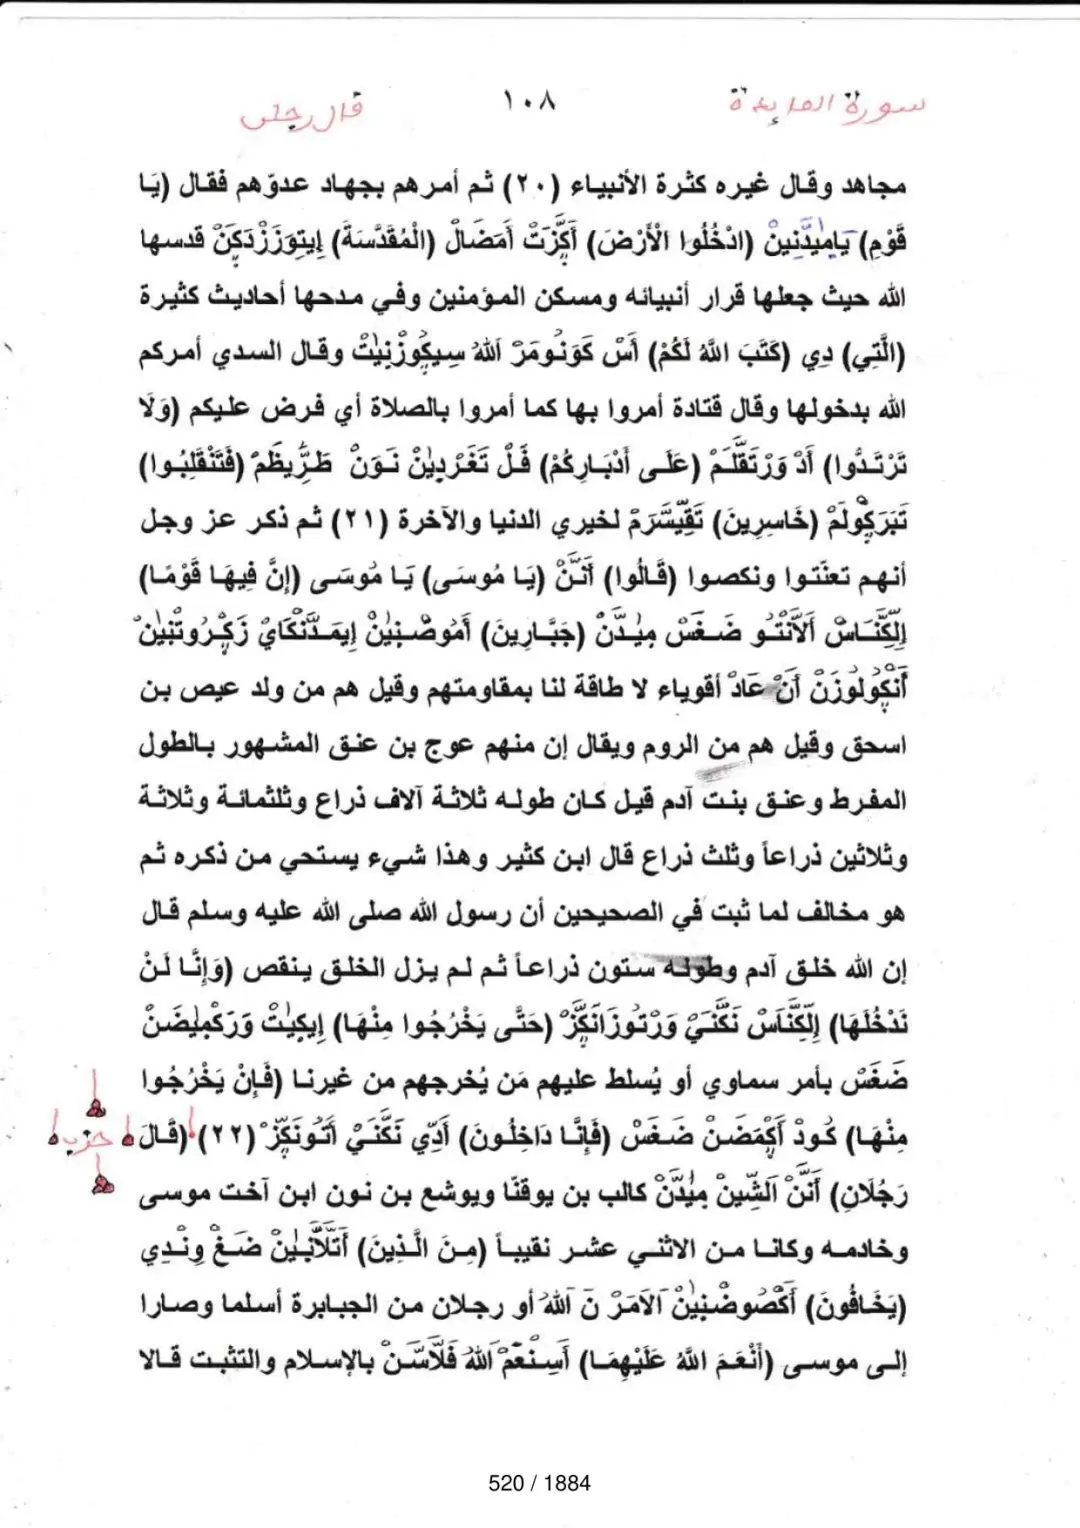 سورة المايدة ١٠٨ قال رجلن
مجاهد وقال غيره كثرة الأنبياء (٢٠) ثم أمرهم بجهاد عدوّهم فقال (يَا
قَوْمِ) يَامِيدَّنِينْ (ادْخُلُوا الْأَرْضَ) أَكَّزَتْ أَمَضَالْ (الْمُقَدَّسَةَ) إِيتِوَزَّزْدَكِنْ قدسها
الله حيث جعلها قرار أنبيائه ومسكن المؤمنين وفي مدحها أحاديث كثيرة
(الَّتِي) دِي (كَتَبَ اللَّهُ لَكُمْ) أَسْ كَوَنُومَرْ اَللهُ سِيكِوُزْنِيتْ وقال السدي أمركم
الله بدخولها وقال قتادة أمروا بها كما أمروا بالصلاة أي فرض عليكم (وَلَا
تَرْتَدُّوا) أَدْ وَرْتَقَّلَمْ (عَلَى أَدْبَارِكُمْ) فَلْ تَغَرْدِينْ نَوَنْ طَرِّيظَمْ (فَتَنْقَلِبُوا)
تَبَرَكِوُلَمْ (خَاسِرِينَ) تَقِيسَّرَمْ لخيري الدنيا والآخرة (٢١) ثم ذكر عز وجل
أنهم تعنّتوا ونكصوا (قَالُوا) أَنَّنْ (يَا مُوسَى) يَا مُوسَى (إِنَّ فِيهَا قَوْمًا)
إِلِّكَنَاسْ اَلَانْتُو ضَغَسْ مِيدَّنْ (جَبَّارِينَ) أَمُوضْنِينْ إِيمَدَّنْكَايْ زَكِرُوتْنِينْ
أَنَكُولُوزَنْ أَنْ عَادْ أقوياء لا طاقة لنا بمقاومتهم وقيل هم من ولد عيص بن
اسحق وقيل هم من الروم ويقال إن منهم عوج بن عنق المشهور بالطول
المفرط وعنق بنت آدم قيل كان طوله ثلاثة آلاف ذراع وثلثمائة وثلاثة
وثلاثين ذراعاً وثلث ذراع قال ابن كثير وهذا شيء يستحي من ذكره ثم
هو مخالف لما ثبت في الصحيحين أن رسول الله صلى الله عليه وسلم قال
إن الله خلق آدم وطوله ستون ذراعاً ثم لم يزل الخلق ينقص (وَإِنَّا لَنْ
نَدْخُلَهَا) إِلِّكَنَاسْ نَكَّنَيْ وَرْتُوزَانَكِّزْ (حَتَّى يَخْرُجُوا مِنْهَا) إِيكِيتْ وَرَكْمِيضَنْ
ضَغَسْ بأمر سماوي أو يُسلط عليهم مَن يُخرجهم من غيرنا (فَإِنْ يَخْرُجُوا
مِنْهَا) كُودْ أَكْمَضَنْ ضَغَسْ (فَإِنَّا دَاخِلُونَ) أَدِّي نَكَّنَيْ أَتُونَكِّزْ (٢٢) (قَالَ حزب
رَجُلَانِ) أَنَّنْ اَلشِّينْ مِيدَّنْ كالب بن يوقنّا ويوشع بن نون ابن آخت موسى
وخادمه وكانا من الاثني عشر نقيباً (مِنَ الَّذِينَ) أَتَلَّانِينْ ضَغْ وِنْدِي
(يَخَافُونَ) أَكْصُوضْنِينْ اَلَامَرْ نَ اَللهُ أو رجلان من الجبابرة أسلما وصارا
إلى موسى (أَنْعَمَ اللَّهُ عَلَيْهِمَا) أَسِنْعَمْ اَللهُ فَلَّاسَنْ بالإسلام والتثبت قالا
520 / 1884